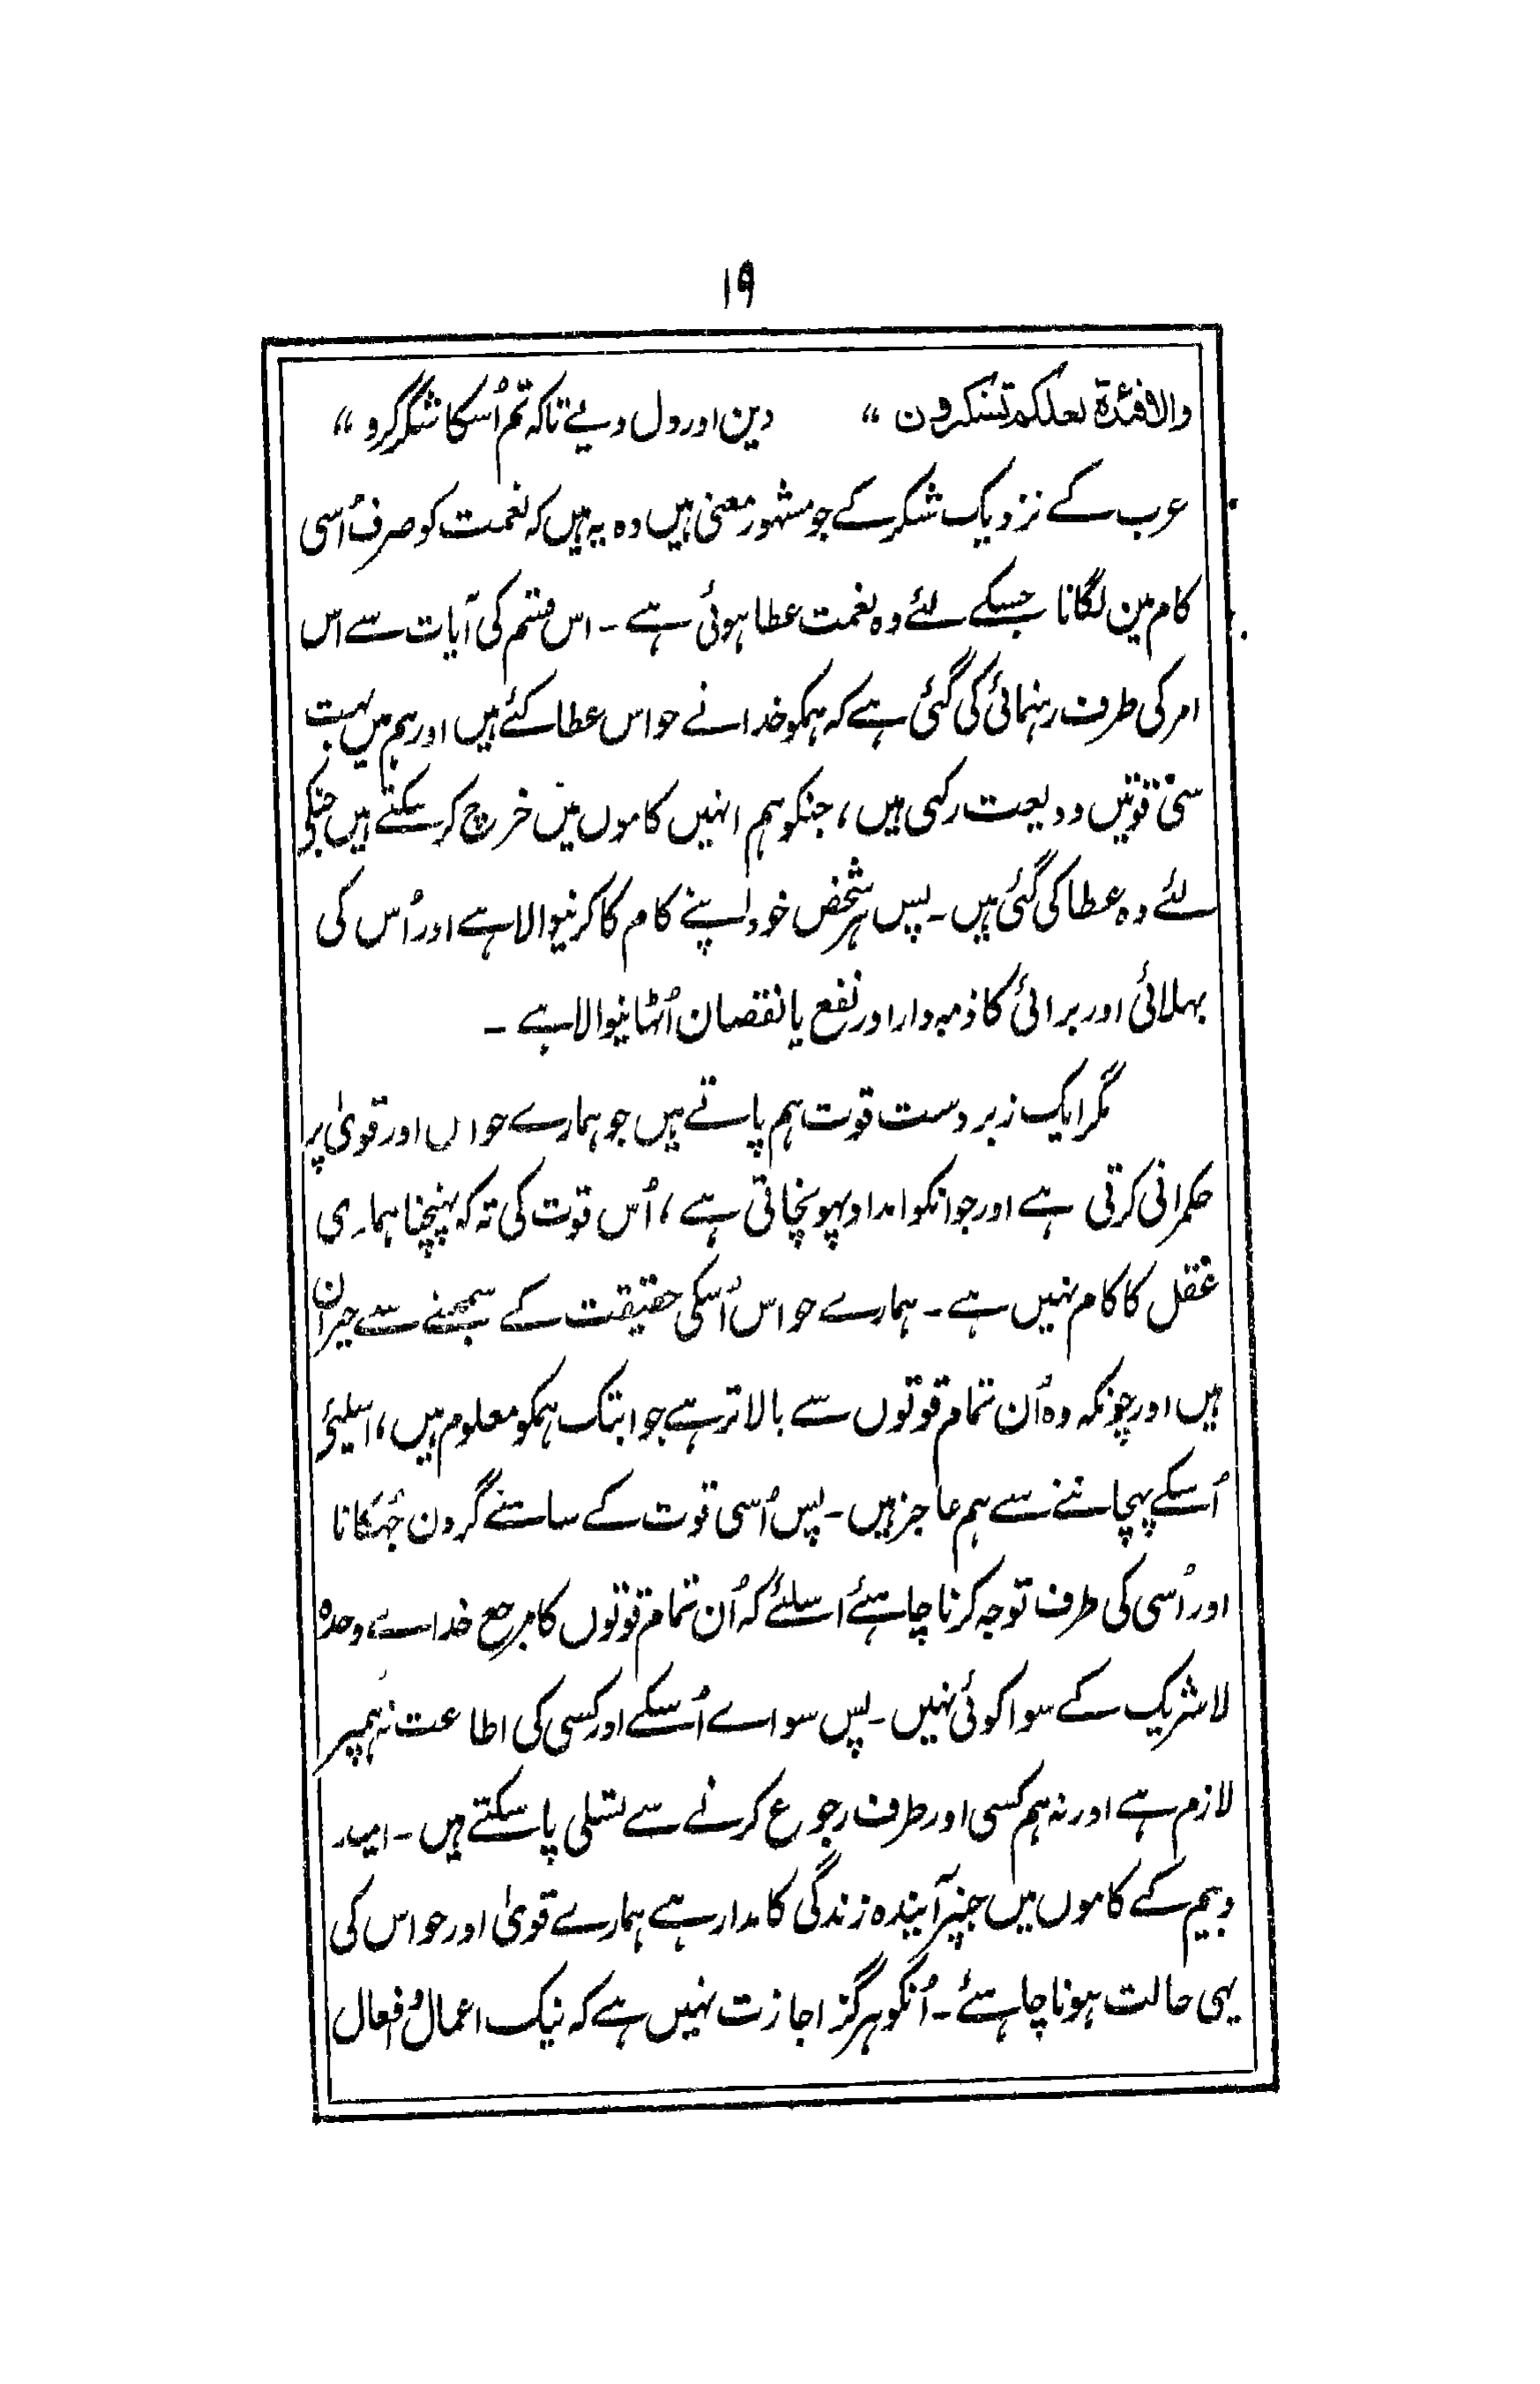 ۱۹
والافئدة لعلکم تشکرون “ دین اور دل دیے تاکہ تم اُسکا شکر کرو “
عرب کے نزدیک شکر کے جو مشہور معنی ہیں وہ یہ ہیں کہ نعمت کو صرف اُسی
کام مین لگانا جسکے لئے وہ نعمت عطا ہوئی ہے ۔ اس قسم کی آیات سے اس
امر کی طرف رہنمائی کی گئی ہے کہ ہمکو خدا نے حواس عطا کئے ہیں اور ہم میں بہت
سی قوتیں ودیعت رکہی ہیں، جنکو ہم انہیں کاموں میں خرچ کر سکتے ہیں جنکی
لئے وہ عطا کی گئی ہیں ۔ پس ہر شخص خود اپنے کام کا کرنیوالا ہے اور اُس کی
بہلائی اور برائی کا ذمہ دار اور نفع یا نقصان اُٹہانیوالا ہے ۔
مگر ایک زبردست قوت ہم پاتے ہیں جو ہمارے حواس اور قویٰ پر
حکمرانی کرتی ہے اور جو انکو امداد پہونچاتی ہے، اُس قوت کی تہ کہ پہنچنا ہماری
عقل کا کام نہیں ہے ۔ ہمارے حواس اُسکی حقیقت کے سمجہنے سے حیران
ہیں اور چونکہ وہ اُن تمام قوتوں سے بالاتر ہے جو ابتک ہمکو معلوم ہیں، اسلیئے
اُسکے پہچاننے سے ہم عاجز ہیں ۔ پس اُسی قوت کے سامنے گردن جُہکانا
اور اُسی کی طرف توجہ کرنا چاہئے اسلئے کہ اُن تمام قوتوں کا مرجع خداے وحدہ
لاشریک کے سوا کوئی نہیں ۔ پس سواے اُسکے اور کسی کی اطاعت نہ ہمپر
لازم ہے اور نہ ہم کسی اور طرف رجوع کرنے سے تسلی پا سکتے ہیں ۔ امید
وبیم کے کاموں میں جنپر آیندہ زندگی کا مدار ہے ہمارے قویٰ اور حواس کی
یہی حالت ہونا چاہئے ۔ اُنکو ہرگز اجازت نہیں ہے کہ نیک اعمال و افعال